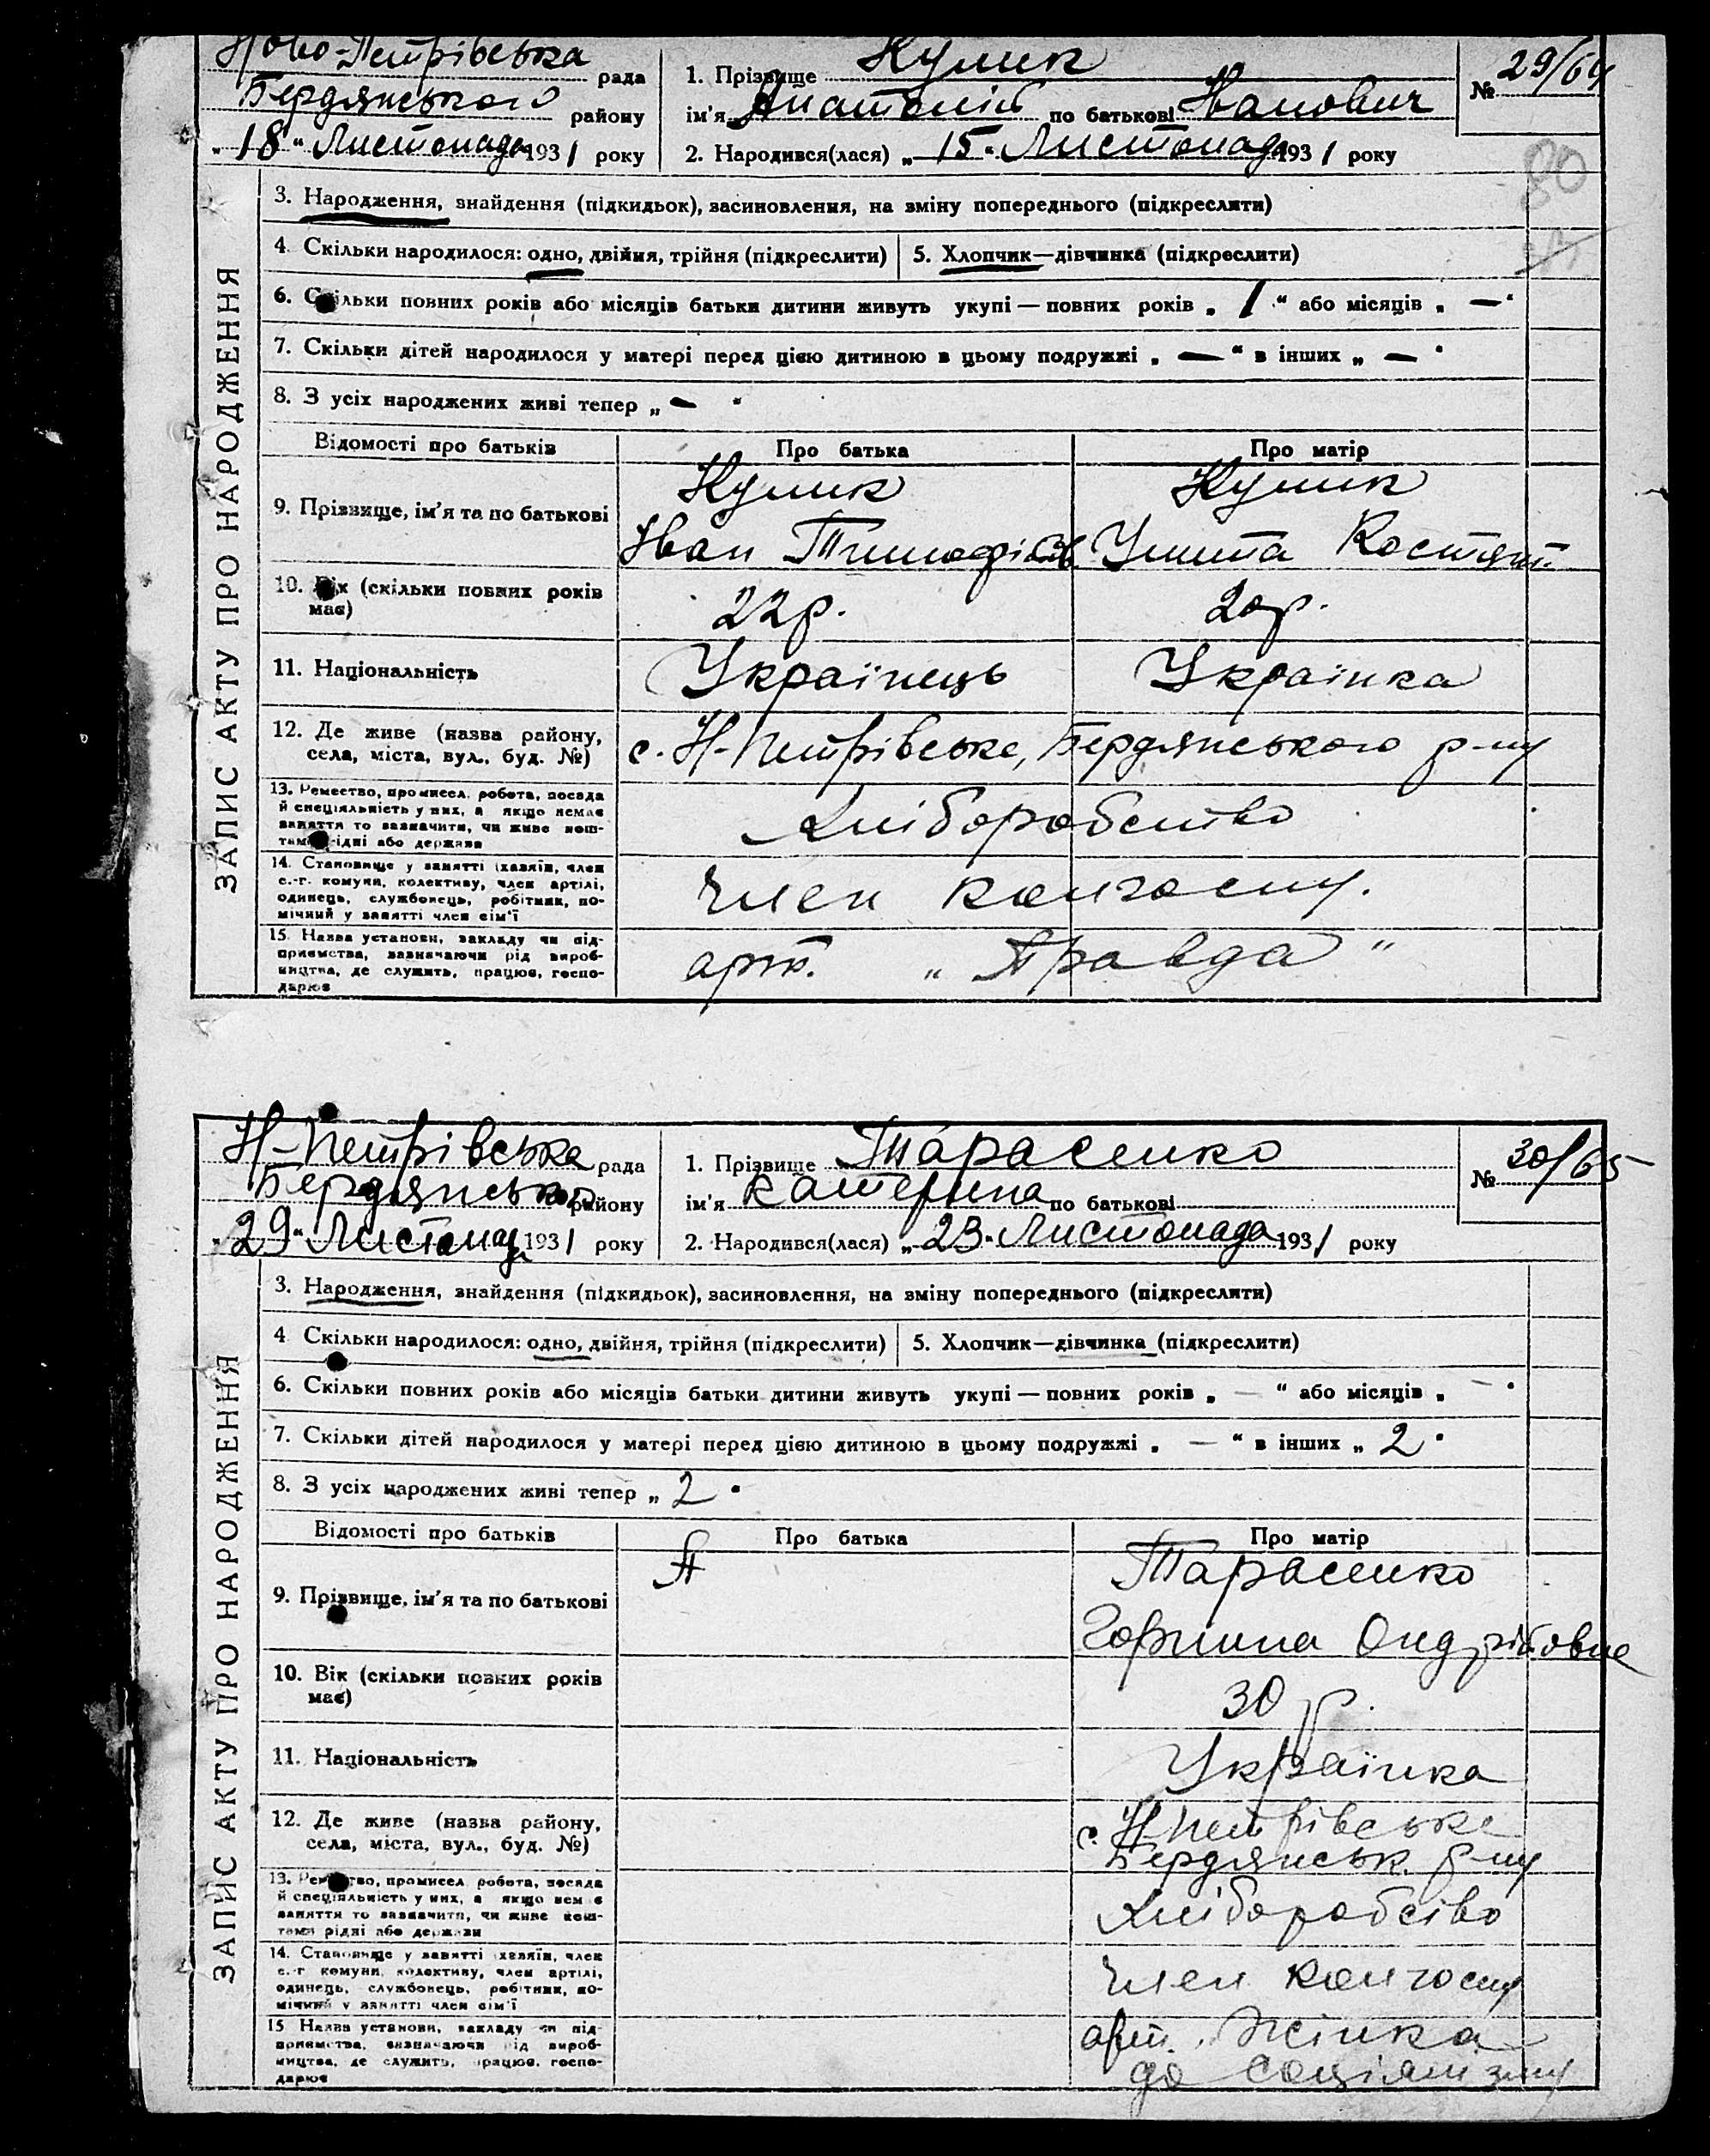 Ново-Петрівська рада
Бердянського району
„18“ Листопада 1931 року
1. Прізвище Кулик
ім'я Анатолій по батькові Іванович
2. Народився(лася) „15“ Листопада 1931 року
№ 29/64
80
ЗАПИС АКТУ ПРО НАРОДЖЕННЯ
3. Народження, знайдення (підкидьок), засиновлення, на зміну попереднього (підкреслити)
4. Скільки народилося: одно, двійня, трійня (підкреслити) 5. Хлопчик—дівчинка (підкреслити)
6. Скільки повних років або місяців батьки дитини живуть укупі — повних років „1“ або місяців „—“
7. Скільки дітей народилося у матері перед цією дитиною в цьому подружжі „—“ в інших „—“
8. З усіх народжених живі тепер „—“
Відомості про батьків Про батька Про матір
9. Прізвище, ім'я та по батькові Кулик Кулик
Іван Тимофійов. Улита Костянт.
10. Вік (скільки повних років має) 22р. 20р.
11. Національність Українець Українка
12. Де живе (назва району, села, міста, вул., буд. №) с. Н-Петрівське, Бердянського р-ну
13. Ремество, промисел, робота, посада
й спеціяльність у них, а якщо немає
заняття то зазначити, чи живе кош-
тами рідні або держави Хліборобство
14. Становище у занятті (хазяїн, член
с.-г. комуни, колективу, член артілі,
одинець, службовець, робітник, по-
мічний у занятті член сім'ї Член колгоспу.
15. Назва установи, закладу чи під-
приємства, зазначаючи рід вироб-
ництва, де служить, працює, госпо-
дарює арт. „Правда“
Н-Петрівська рада
Бердянськог району
„29“ Листопад 1931 року
1. Прізвище Тарасенко
ім'я Катерина по батькові
2. Народився(лася) „23“ Листопада 1931 року
№ 30/65
ЗАПИС АКТУ ПРО НАРОДЖЕННЯ
3. Народження, знайдення (підкидьок), засиновлення, на зміну попереднього (підкреслити)
4. Скільки народилося: одно, двійня, трійня (підкреслити) 5. Хлопчик—дівчинка (підкреслити)
6. Скільки повних років або місяців батьки дитини живуть укупі — повних років „—“ або місяців „—“
7. Скільки дітей народилося у матері перед цією дитиною в цьому подружжі „—“ в інших „2“
8. З усіх народжених живі тепер „2“
Відомості про батьків Про батька Про матір
9. Прізвище, ім'я та по батькові Тарасенко
Горпина Ондрійовне
10. Вік (скільки повних років має) 30 р.
11. Національність Українка
12. Де живе (назва району, с. Н-Петрівське
села, міста, вул., буд. №) Бердянськ. р-ну
13. Ремество, промисел, робота, посада
й спеціяльність у них, а якщо немає
заняття то зазначити, чи живе кош-
тами рідні або держави Хліборобство
14. Становище у занятті (хазяїн, член
с.-г. комуни, колективу, член артілі,
одинець, службовець, робітник, по-
мічний у занятті член сім'ї Член колгоспу
15. Назва установи, закладу чи під-
приємства, зазначаючи рід вироб-
ництва, де служить, працює, госпо-
дарює арт. Жінка
до соціялізму